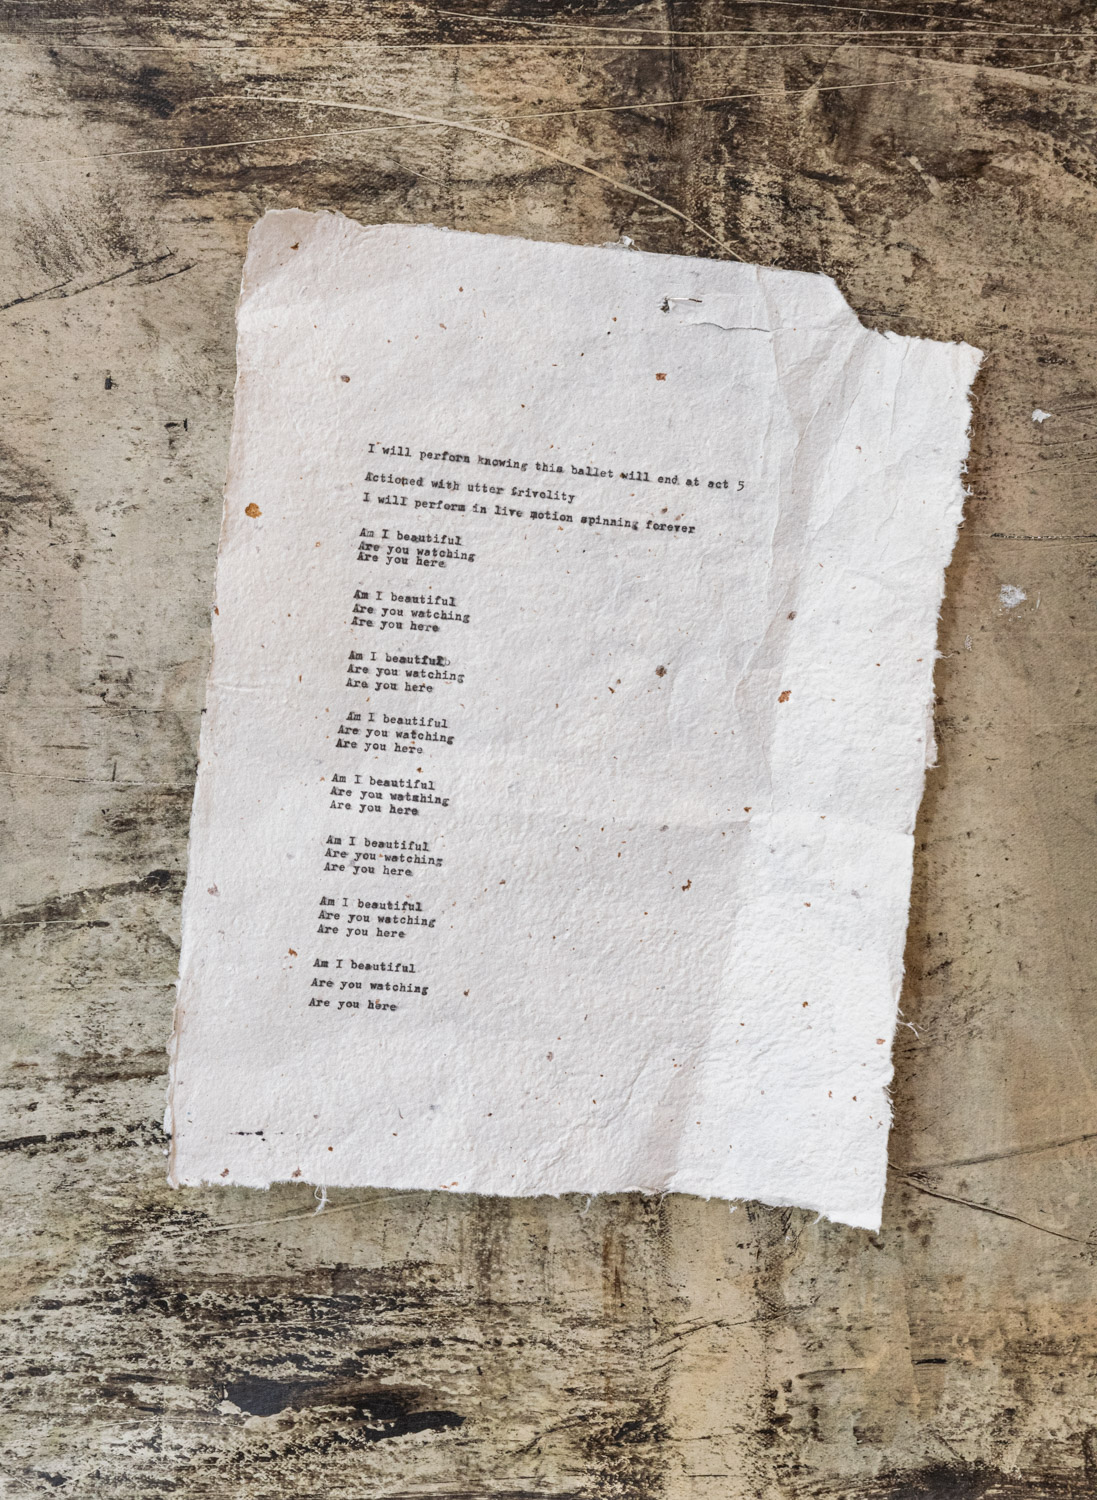 I will perform knowing this ballet will end at act 5
Actioned with utter frivolity
I will perform in live motion spinning forever
Am I beautiful
Are you watching
Are you here
Am I beautiful
Are you watching
Are you here
Am I beautiful
Are you watching
Are you here
Am I beautiful
Are you watching
Are you here
Am I beautiful
Are you watching
Are you here
Am I beautiful
Are you watching
Are you here
Am I beautiful
Are you watching
Are you here
Am I beautiful
Are you watching
Are you here